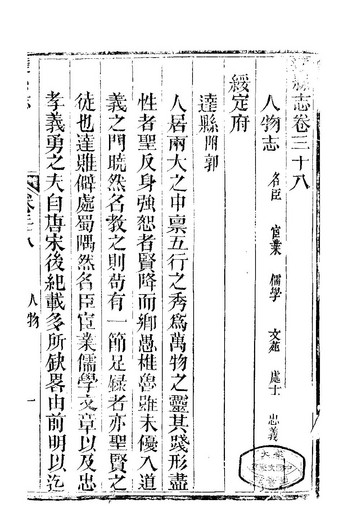 縣志卷三十八
人物志 名臣 宦業 儒學 文苑 處士 忠義
綏定府
達縣附郭
人居兩大之中稟五行之秀為萬物之靈其踐形盡
性者聖反身強恕者賢降而鄉愚椎魯雖未優入道
義之門曉然名教之則苟有一節足録者亦聖賢之
徒也達雖僻處蜀隅然名臣宦業儒學文章以及忠
孝義勇之夫自唐宋後紀載多所缺畧由前明以迄
人物
一